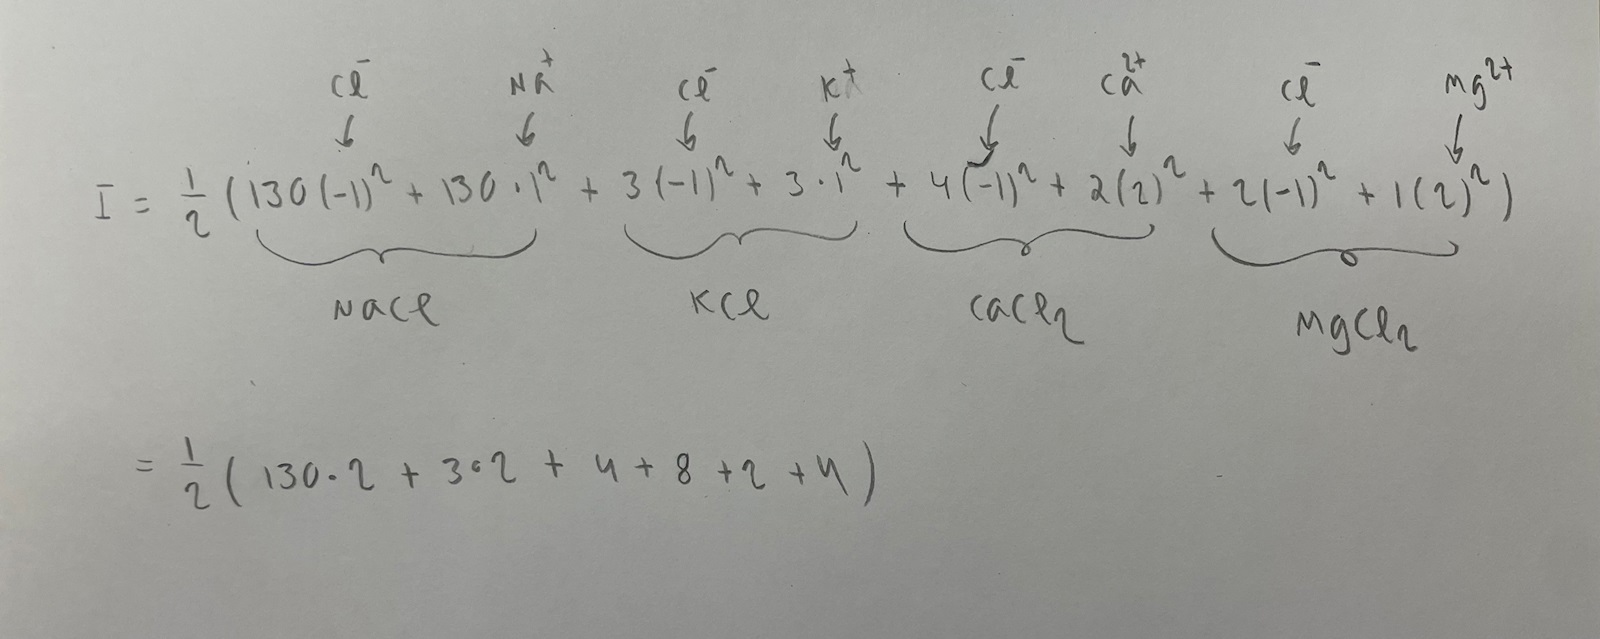 Cl⁻ Na⁺ Cl⁻ K⁺ Cl⁻ Ca²⁺ Cl⁻ Mg²⁺
↓ ↓ ↓ ↓ ↓ ↓ ↓ ↓
I = 1/2 (130(-1)² + 130·1² + 3(-1)² + 3·1² + 4(-1)² + 2(2)² + 2(-1)² + 1(2)²)
NaCl KCl CaCl₂ MgCl₂
= 1/2 (130·2 + 3·2 + 4 + 8 + 2 + 4)